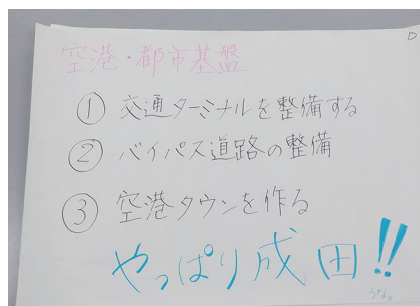 D
空港・都市基盤
① 交通ターミナルを整備する
② バイパス道路の整備
③ 空港タウンを作る
やっぱり成田!!